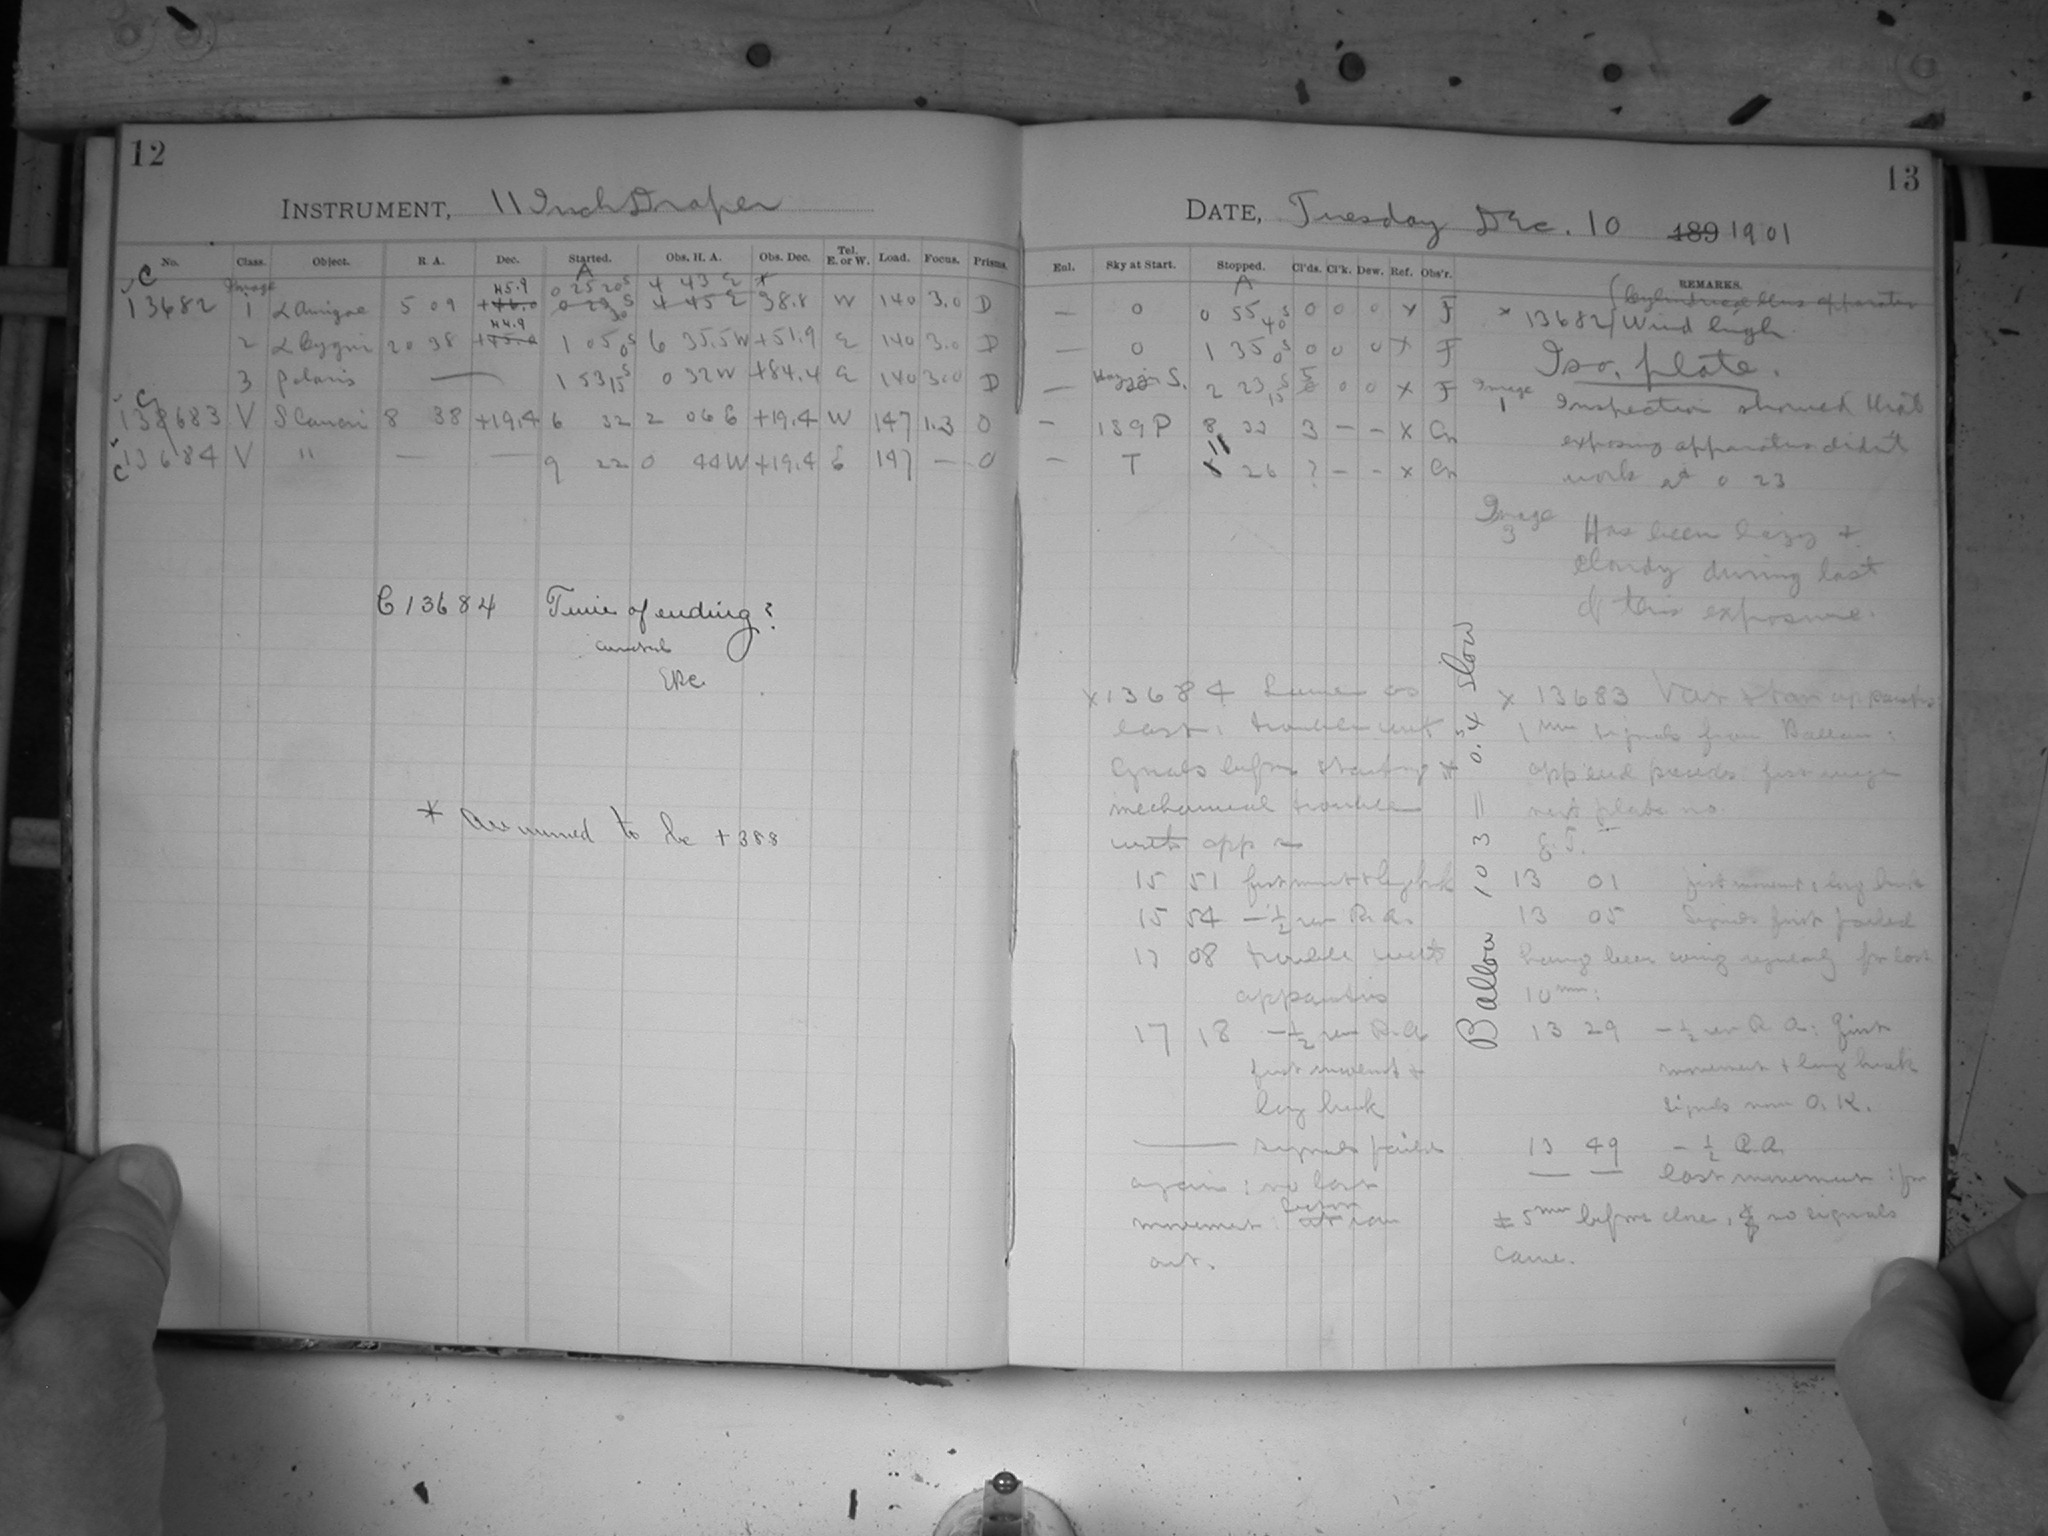 12
INSTRUMENT, 11 Inch Draper
No. Class. Object. R. A. Dec. Started. Obs. H. A. Obs. Dec. Tel. E. or W. Load. Focus. Prisms.
A
C Image 45.9 0 25 20s 4 43 E *
13682 1 α Aurigae 5 09 +46.0 0 23 30s 4 45 E 38.8 W 140 3.0 D
44.9
2 α Cygni 20 38 +45.0 1 05 0s 6 35.5 W +51.9 E 140 3.0 D
3 Polaris — 1 53 15s 0 32 W +84.4 E 140 3.0 D
C
138683 V S Cancri 8 38 +19.4 6 32 2 06 E +19.4 W 147 1.3 O
C 13684 V " — — 9 22 0 44 W +19.4 E 147 — O
C 13684 Time of ending?
* Assumed to be +388
13
DATE, Tuesday Dec. 10 189 1901
Enl. Sky at Start. Stopped. Cl'ds. Cl'k. Dew. Ref. Obs'r. REMARKS.
A
— 0 0 55 40s 0 0 0 x F
— 0 1 35 0s 0 0 0 x F
— S. 2 23 15s 5 0 0 x F
— 139 P 8 32 3 — — x Cn
— T 11 26 ? — — x Cn
Cylindrical lens apparatus
x 13682 Wind high
Iso. plate.
Image 1 Inspection showed that
exposing apparatus didn't
work at 0 23
Image 3 Has been hazy +
cloudy during last
of this exposure.
x 13684 Same as
last: trouble with
signals before starting &
mechanical trouble
with app
15 51 first movemt + long break
15 54 —½ rev R.A.
17 08 trouble with
apparatus
17 18 —½ rev R.A.
first movemt +
long break
— signals failed
again: no last
movement:
out.
Ballou 103 = 0.s4 slow
x 13683 Var star apparatus
1 min signals from Ballou:
app end precedes first image
next plate no.
E.T.
13 01 first movemt, long break
13 05 Signals first failed
having been coming regularly for last
10 min:
13 29 —½ rev R.A.: first
movement + long break
signals now O.K.
13 49 — ½ R.A.
— — last movement: for
± 5 min before close, no signals
came.